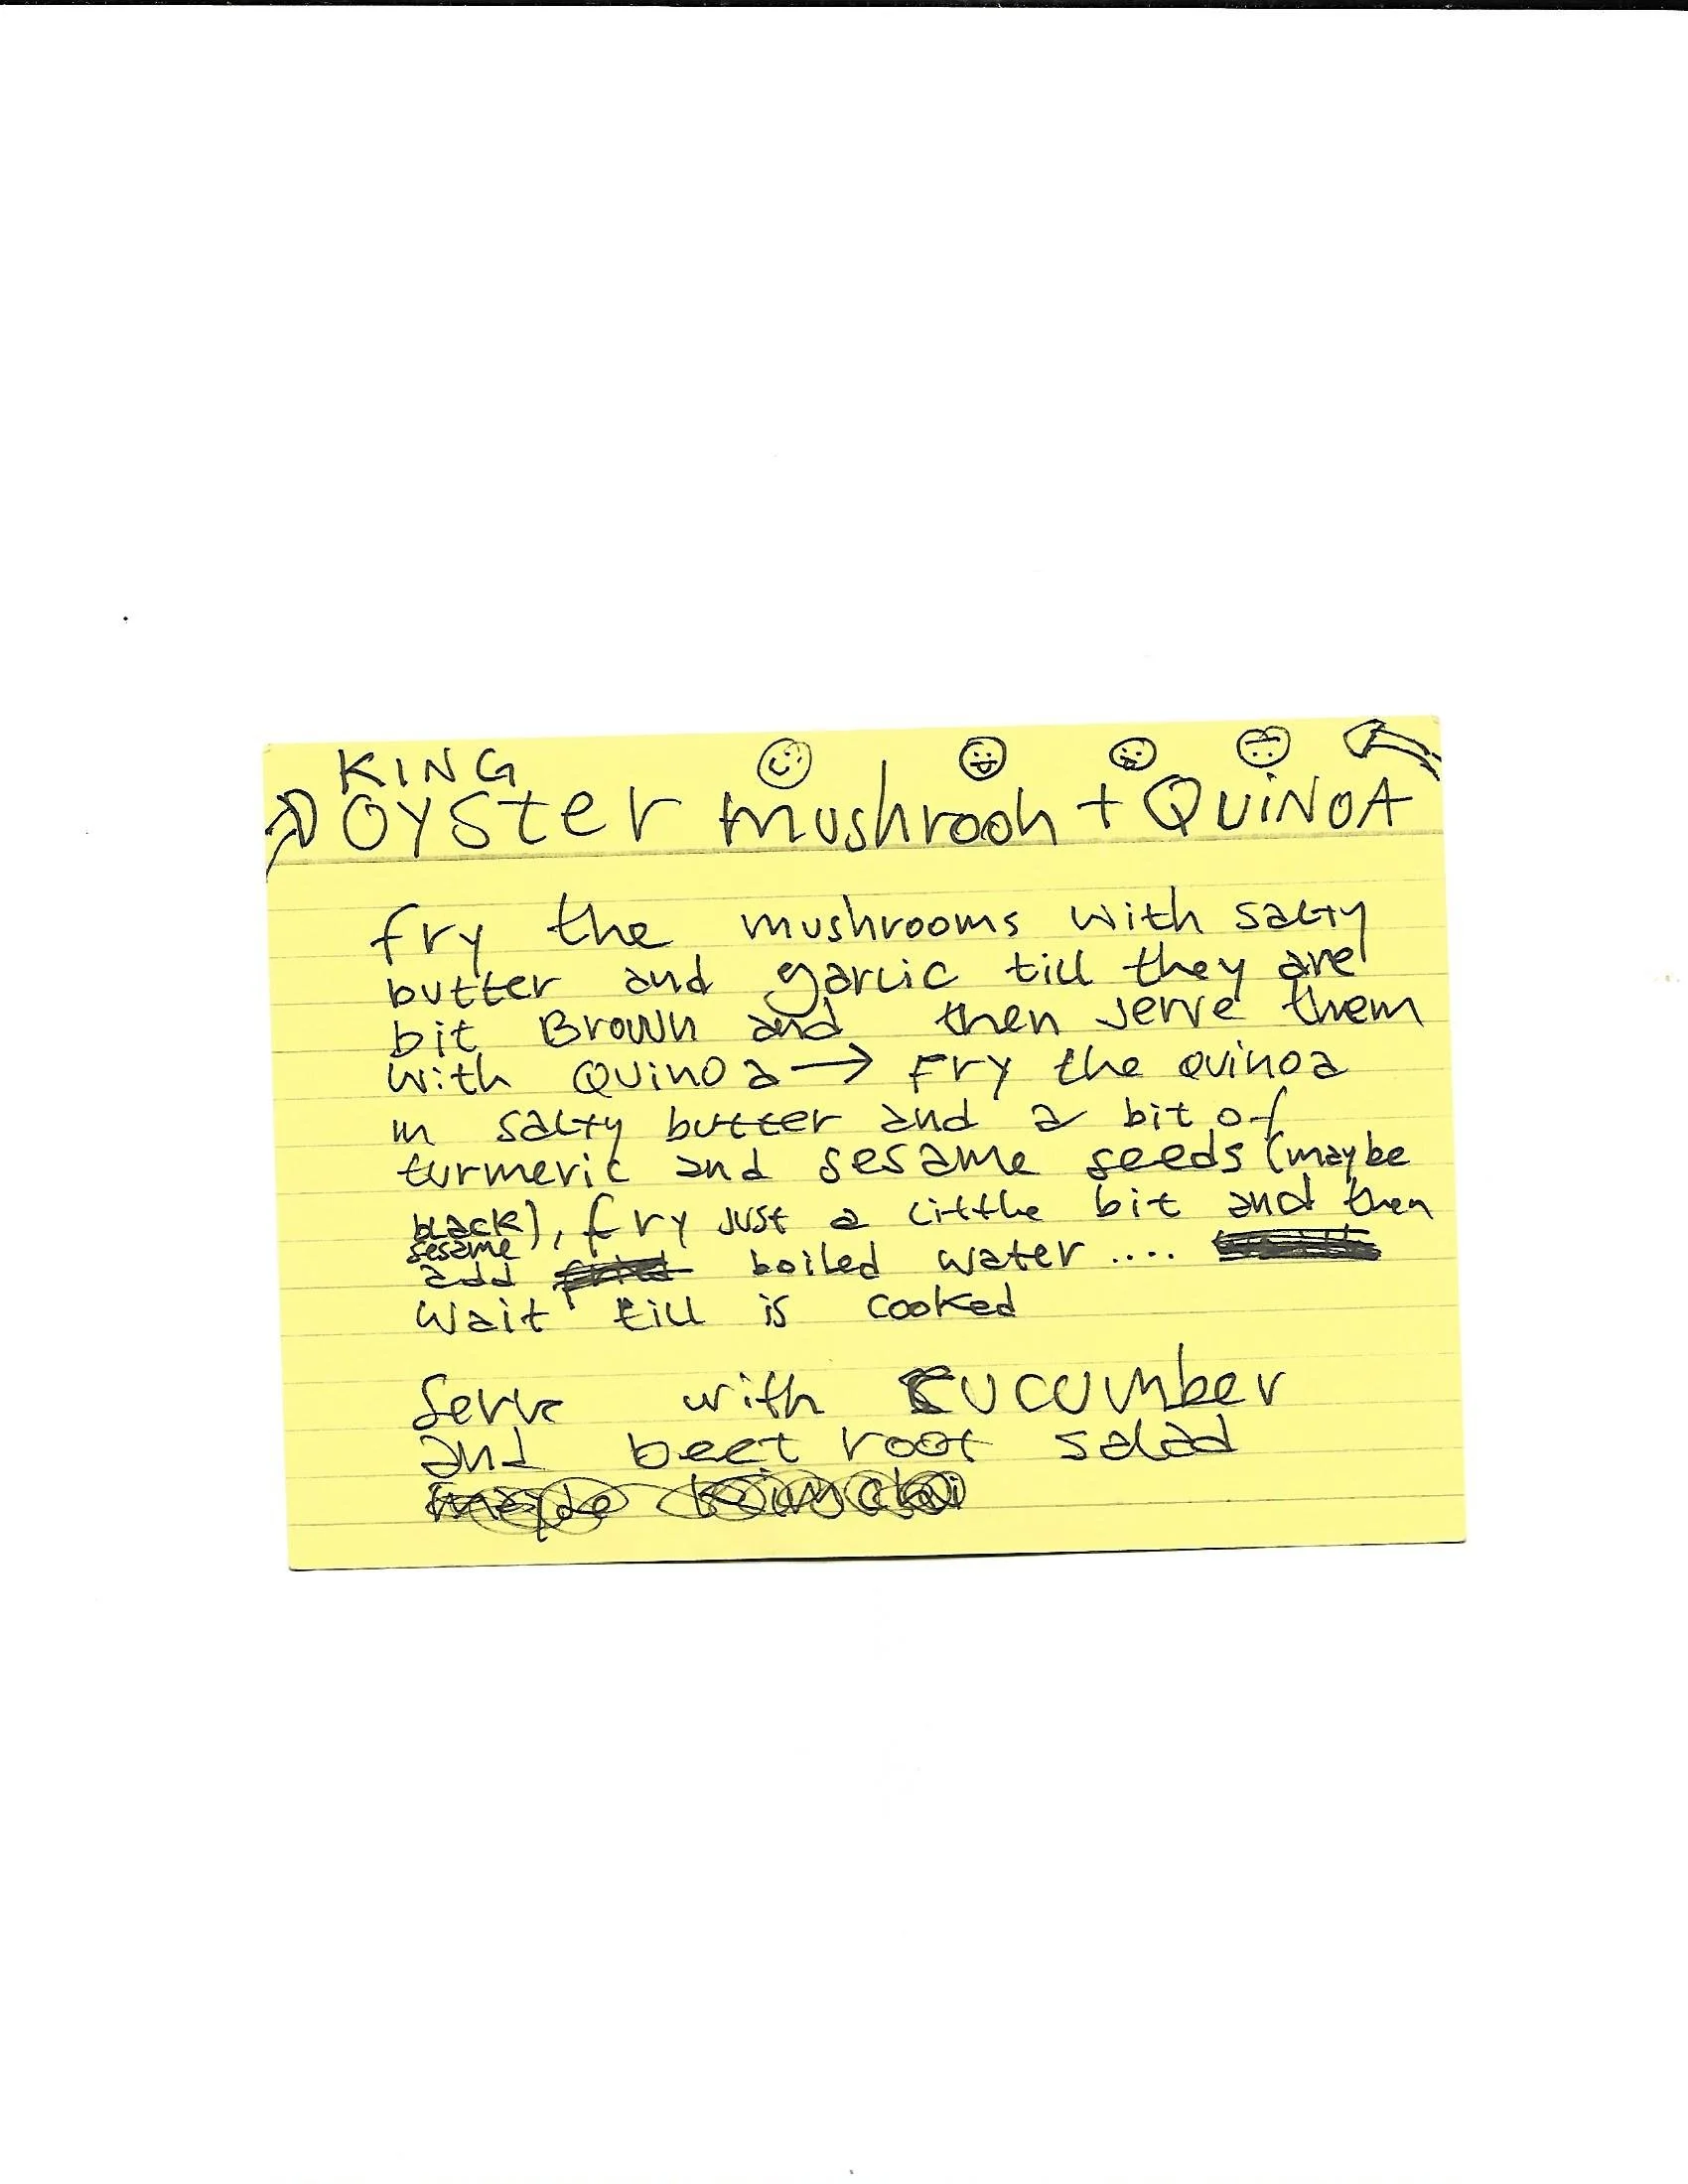 KING
OYSter mushrooh + QUiNOA
fry the mushrooms with salty
butter and garlic till they are
bit Brown and then serve them
with Quinoa → Fry the quinoa
in salty butter and a bit of
turmeric and sesame seeds (maybe
black), fry just a litthe bit and then
sesame
add boiled water ....
Wait till is cooked
Serve with CUCUMber
and beet root salad
maybe kimchi